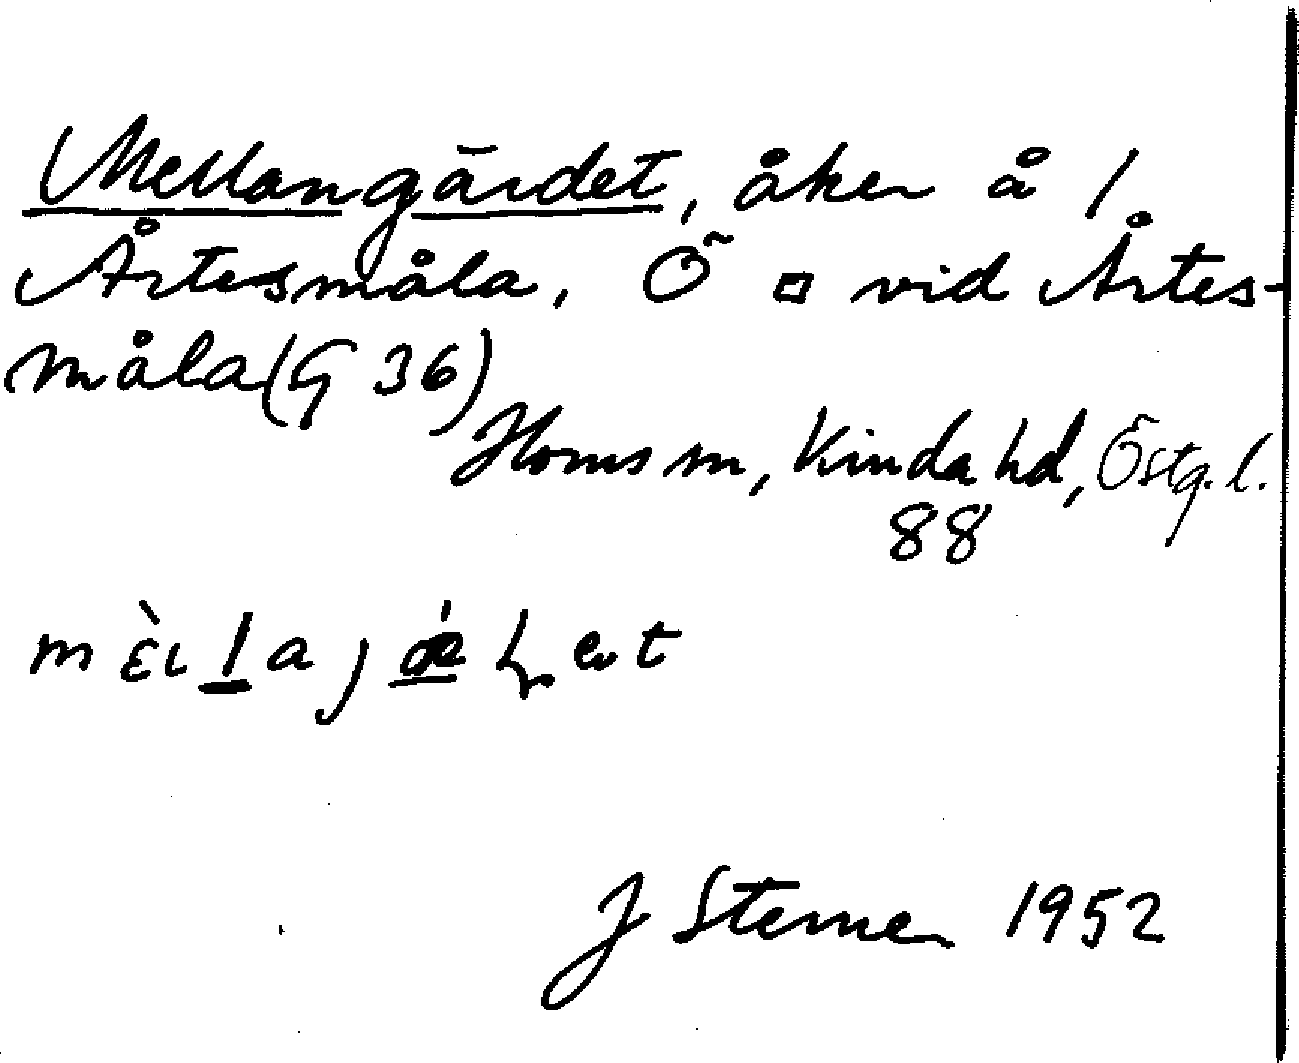 Mellangärdet, åker å 1
Årtesmåla. Ö □ vid Årtes-
måla (G 36)
Horns sn, Kinda hd, Östg. l.
88
J Sterner 1952